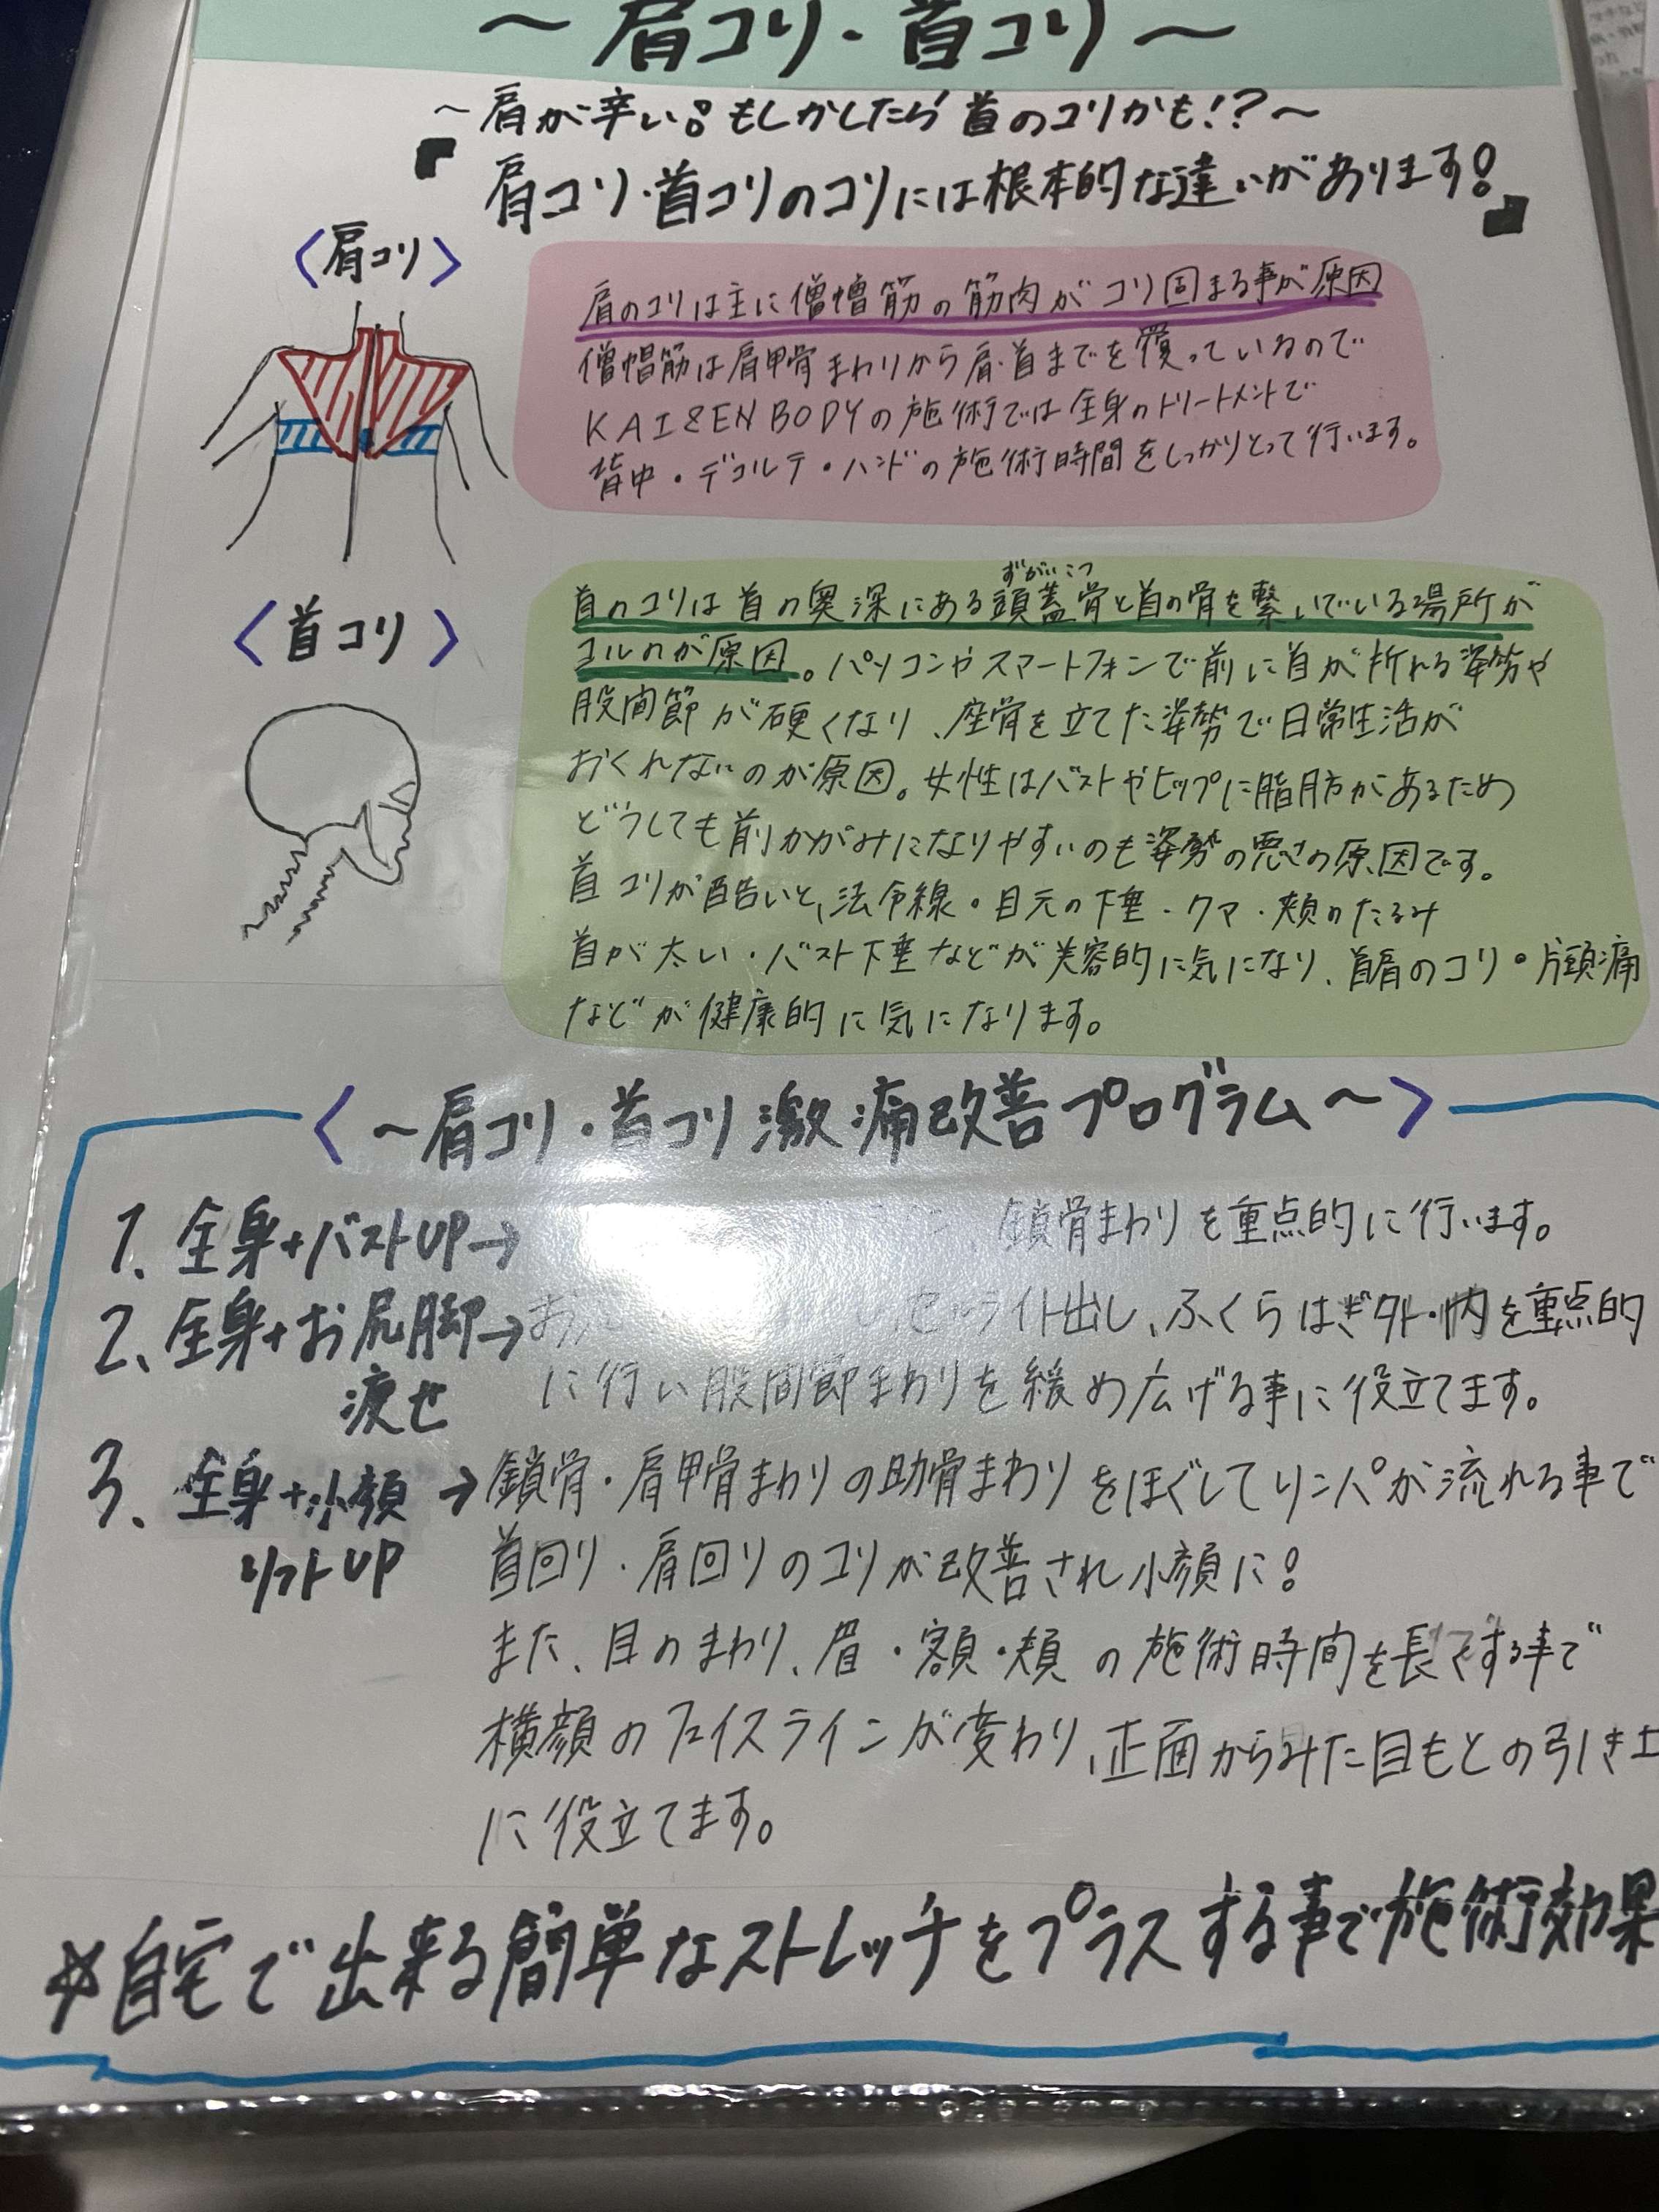 ～肩コリ・首コリ～
～肩が辛い!もしかしたら首のコリかも!?～
肩コリ・首コリのコリには根本的な違いがあります!
〈肩コリ〉
肩のコリは主に僧帽筋の筋肉がコリ固まる事が原因
僧帽筋は肩甲骨まわりから肩・首までを覆っているので
KAIZEN BODYの施術では全身のトリートメントで
背中・デコルテ・ハンドの施術時間をしっかりとって行います。
〈首コリ〉
ずがいこつ
首のコリは首の奥深にある頭蓋骨と首の骨を繋いでいる場所が
コルのが原因。パソコンやスマートフォンで前に首が折れる姿勢や
股間節が硬くなり、座骨を立てた姿勢で日常生活が
おくれないのが原因。女性はバストやヒップに脂肪があるため
どうしても前かがみになりやすいのも姿勢の悪さの原因です。
首コリが酷いと、法令線・目元の下垂・クマ・頬のたるみ
首が太い・バスト下垂などが美容的に気になり、首肩のコリ・片頭痛
などが健康的に気になります。
〈～肩コリ・首コリ激痛改善プログラム～〉
1、全身+バストUP→ 鎖骨まわりを重点的に行います。
2、全身+お尻脚→ セルライト出し、ふくらはぎ外・内を重点的
痩せ に行い股間節まわりを緩め広げる事に役立てます。
3、全身+小顔→鎖骨・肩甲骨まわりの助骨まわりをほぐしてリンパが流れる事で
リフトUP 首回り・肩回りのコリが改善され小顔に!
また、目のまわり、眉・額・頬の施術時間を長くする事で
横顔のフェイスラインが変わり、正面からみた目もとの引き上
に役立てます。
☆自宅で出来る簡単なストレッチをプラスする事で施術効果